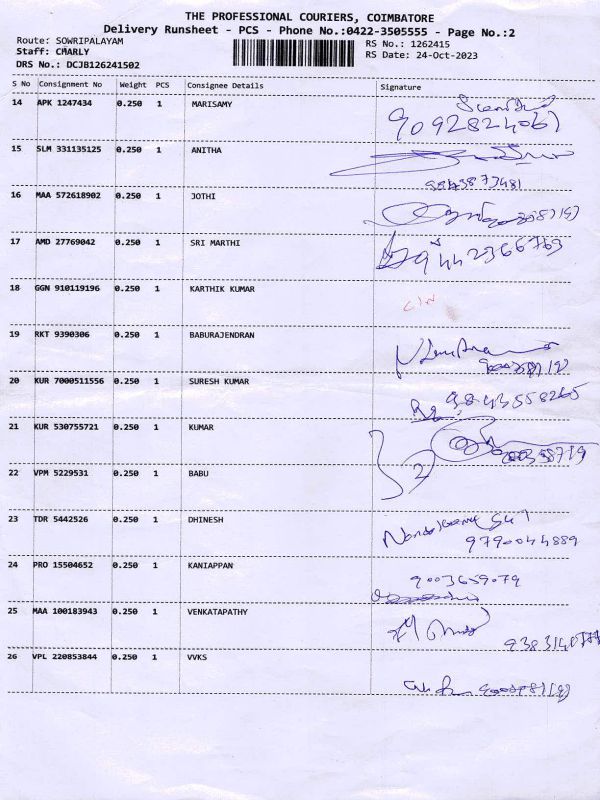 THE PROFESSIONAL COURIERS, COIMBATORE
Delivery Runsheet - PCS - Phone No.:0422-3505555 - Page No.:2
Route: SOWRIPALAYAM
RS No.: 1262415
Staff: CHARLY
RS Date: 24-Oct-2023
DRS No.: DCJB126241502
S No Consignment No Weight PCS Consignee Details Signature
14 APK 1247434 0.250 1 MARISAMY
9092824067
15 SLM 331135125 0.250 1 ANITHA
9843873481
16 MAA 572618902 0.250 1 JOTHI
17 AMD 27769042 0.250 1 SRI MARTHI
9442366763
18 GGN 910119196 0.250 1 KARTHIK KUMAR
19 RKT 9390306 0.250 1 BABURAJENDRAN
20 KUR 7000511556 0.250 1 SURESH KUMAR
9843558265
21 KUR 530755721 0.250 1 KUMAR
22 VPM 5229531 0.250 1 BABU
23 TDR 5442526 0.250 1 DHINESH
9790044889
24 PRO 15504652 0.250 1 KANIAPPAN
9003659079
25 MAA 100183943 0.250 1 VENKATAPATHY
26 VPL 220853844 0.250 1 VVKS